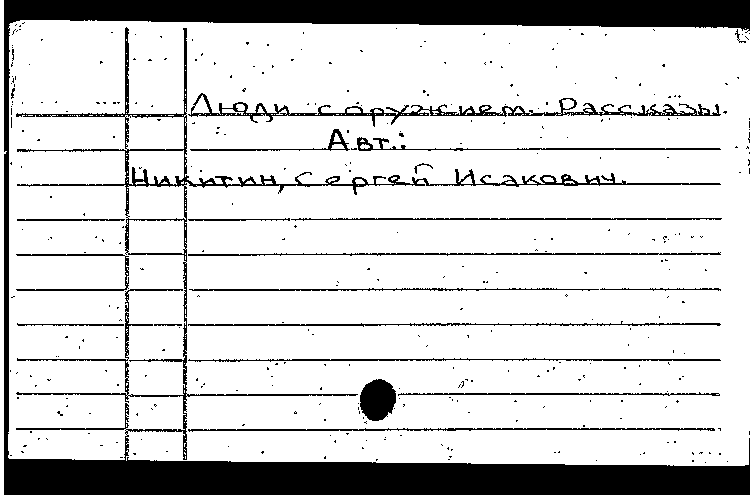 Люди с оружием. Рассказы.
Авт.:
Никитин, Сергей Исакович.